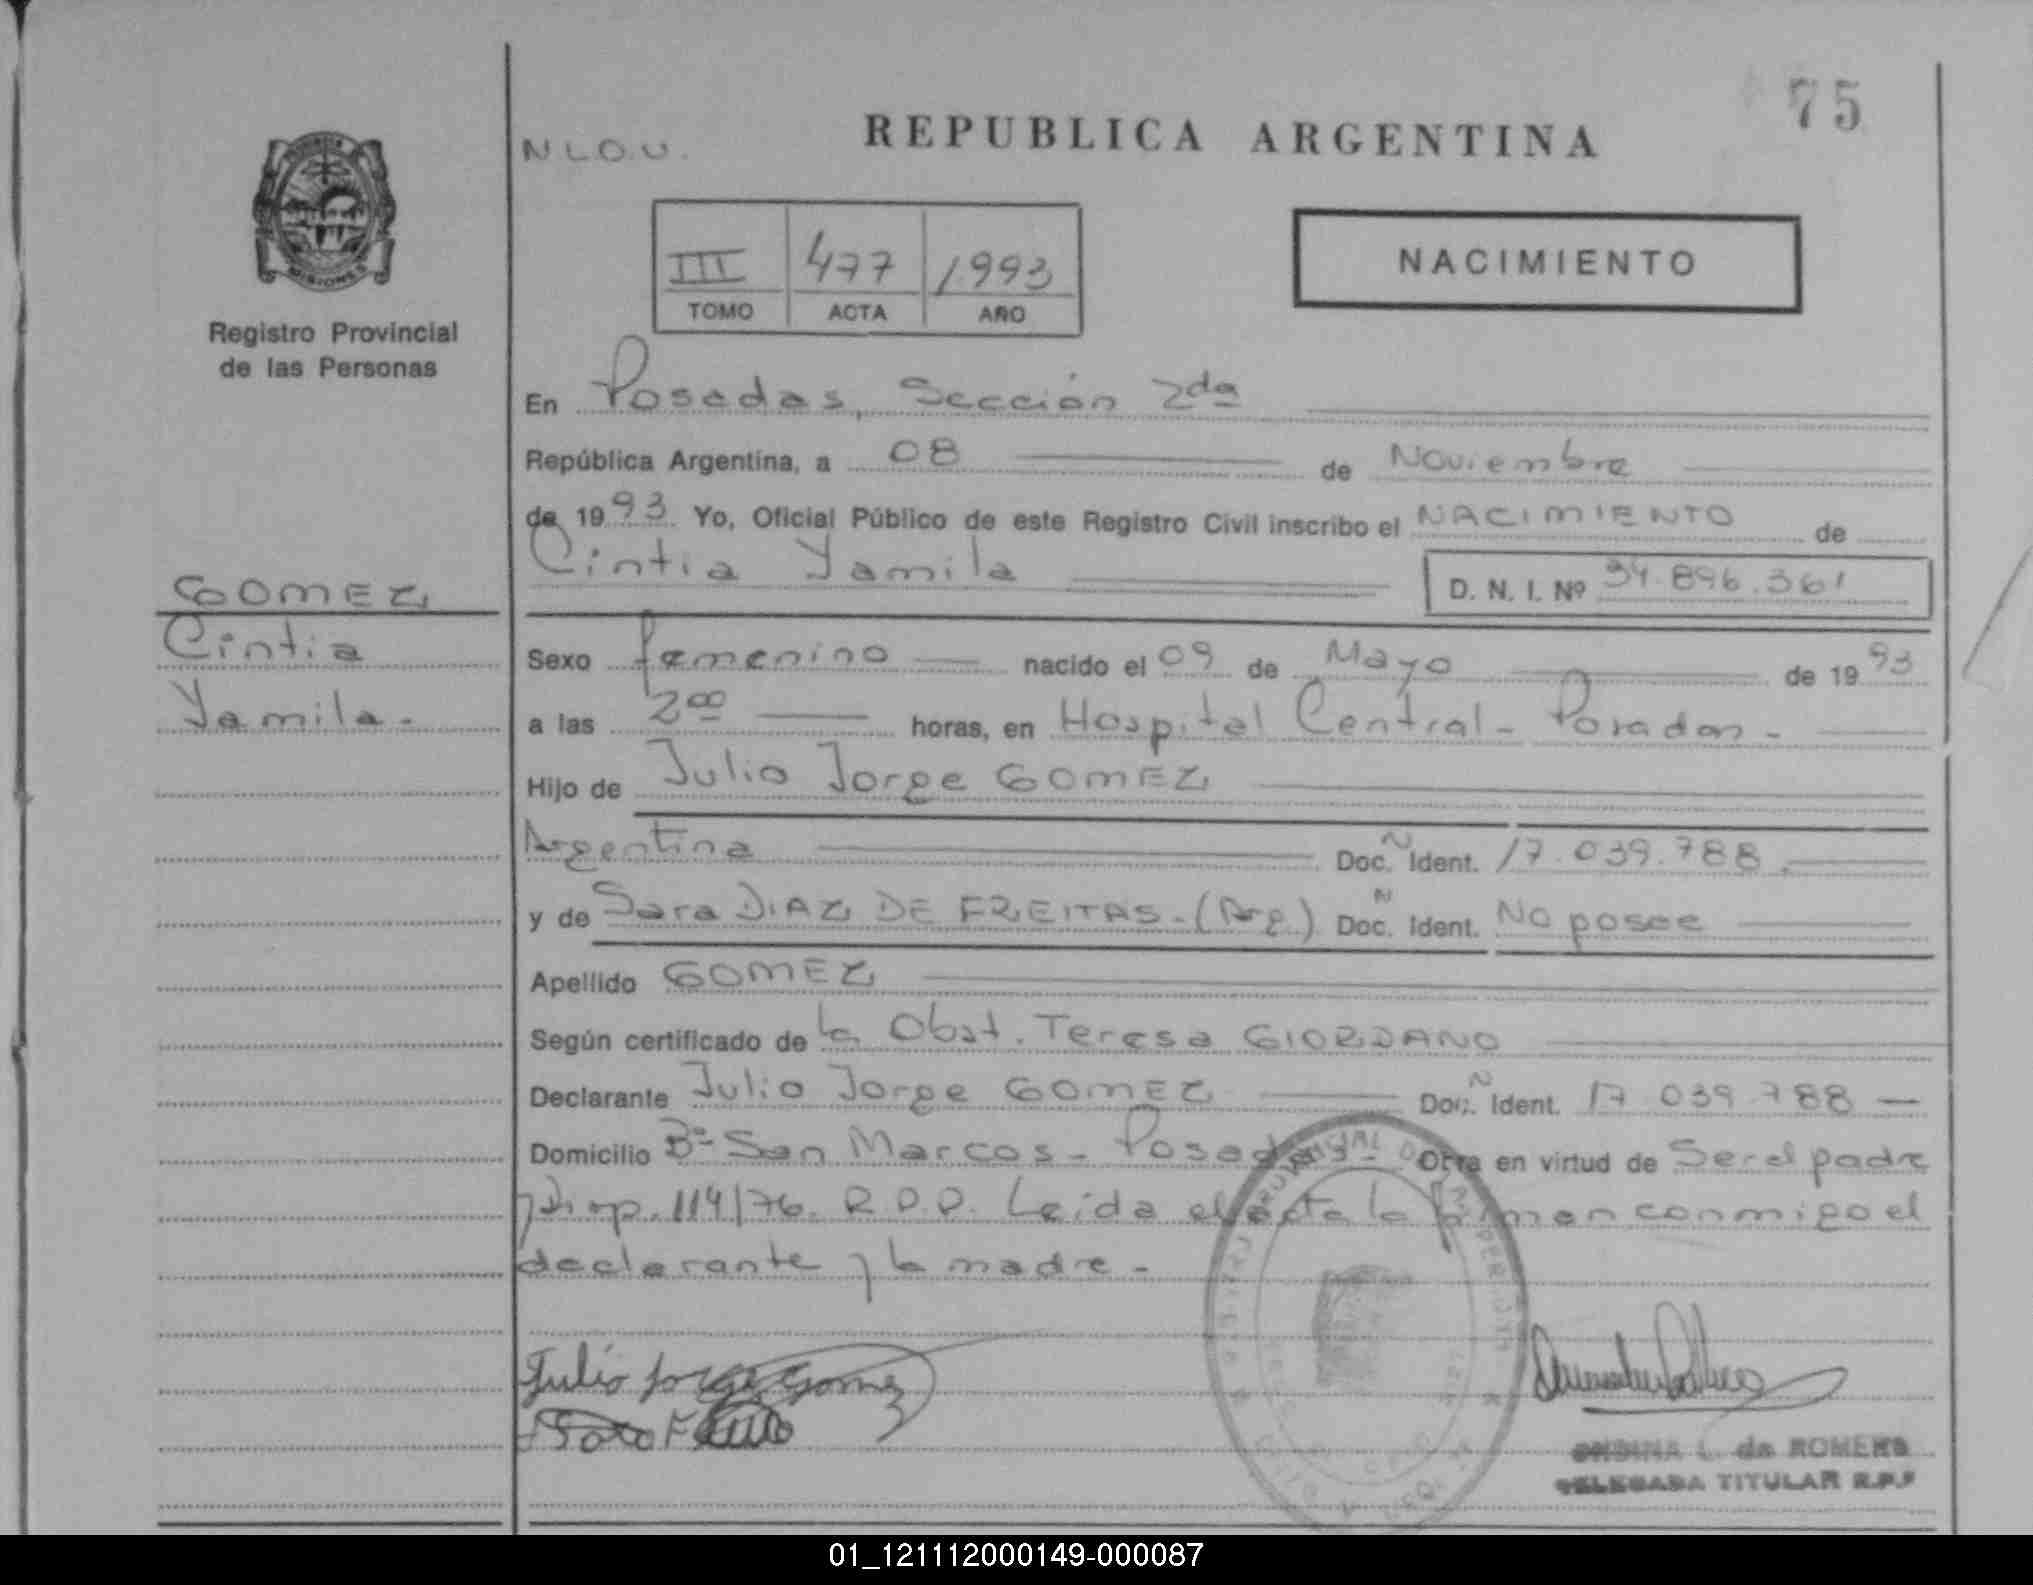 75
REPUBLICA ARGENTINA
N L O.U.
NACIMIENTO
III 477 1993
TOMO ACTA AÑO
MISIONES
Registro Provincial
de las Personas
En Posadas, Sección 2da
República Argentina, a 08 de Noviembre
de 1993 Yo, Oficial Público de este Registro Civil inscribo el NACIMIENTO de
Cintia Yamila D. N. I. Nº 34.896.361
GOMEZ
Cintia
Yamila.-
Sexo femenino nacido el 09 de Mayo de 1993
a las 2 00 horas, en Hospital Central - Posadas -
Hijo de Julio Jorge GOMEZ
Argentina Doc. Ident. 17.039.788.
y de Sara DIAZ DE FREITAS.- (Arg.) Doc. Ident. No posee
Apellido GOMEZ
Según certificado de la Obst. Teresa GIORDANO
Declarante Julio Jorge GOMEZ Doc. Ident. 17.039.788 —
Domicilio Bº San Marcos - Posadas - Obra en virtud de Ser el padre
y Disp. 114/76. R.P.P. Leída el acta la firman conmigo el
declarante y la madre -
Julio Jorge Gomez
ONDINA L. de ROMERO
DELEGADA TITULAR R.P.P
01_121112000149-000087